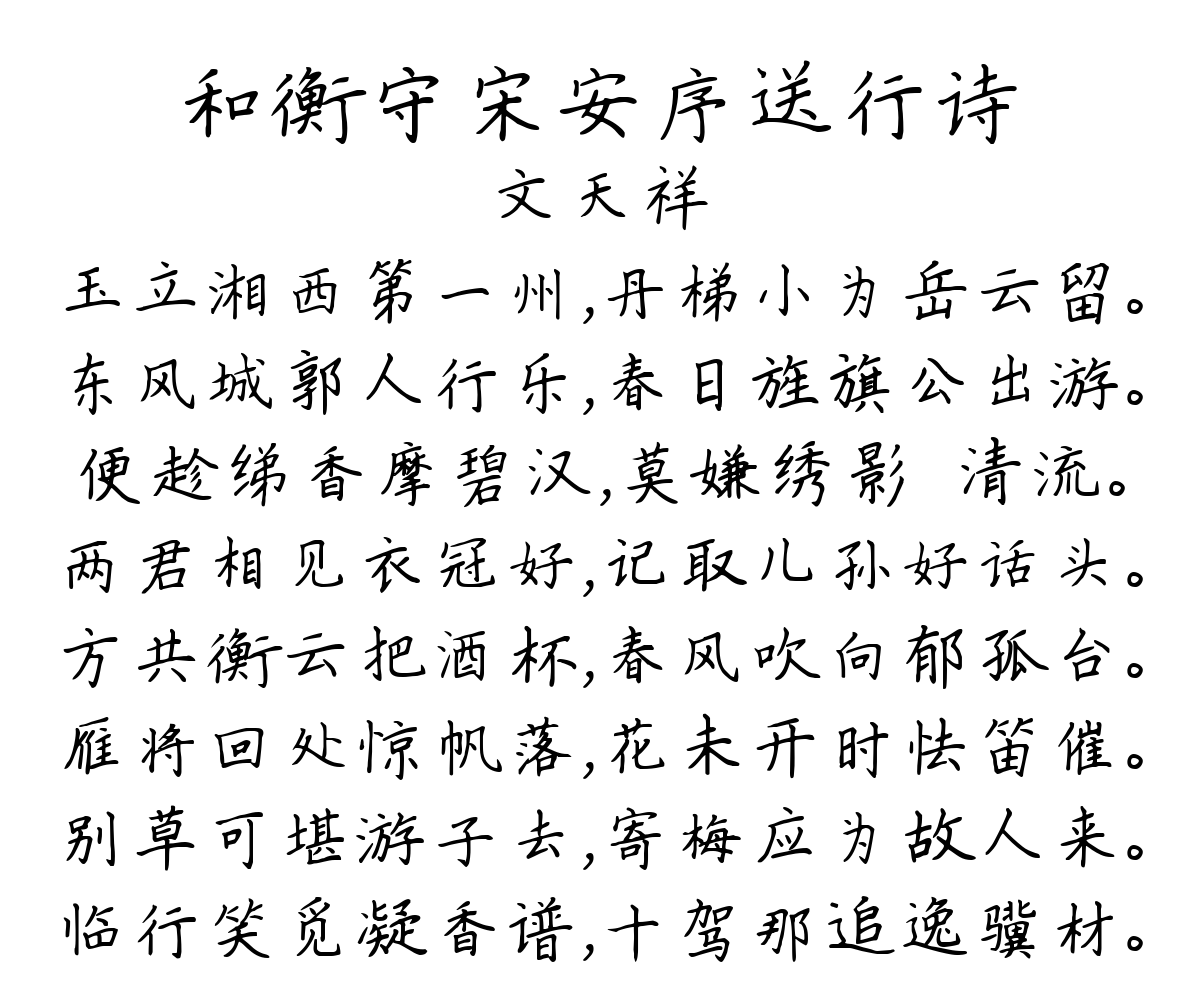 和衡守宋安序送行诗
文天祥
玉立湘西第一州,丹梯小为岳云留。
东风城郭人行乐,春日旌旗公出游。
便趁绨香摩碧汉,莫嫌绣影 清流。
两君相见衣冠好,记取儿孙好话头。
方共衡云把酒杯,春风吹向郁孤台。
雁将回处惊帆落,花未开时怯笛催。
别草可堪游子去,寄梅应为故人来。
临行笑觅凝香谱,十驾那追逸骥材。